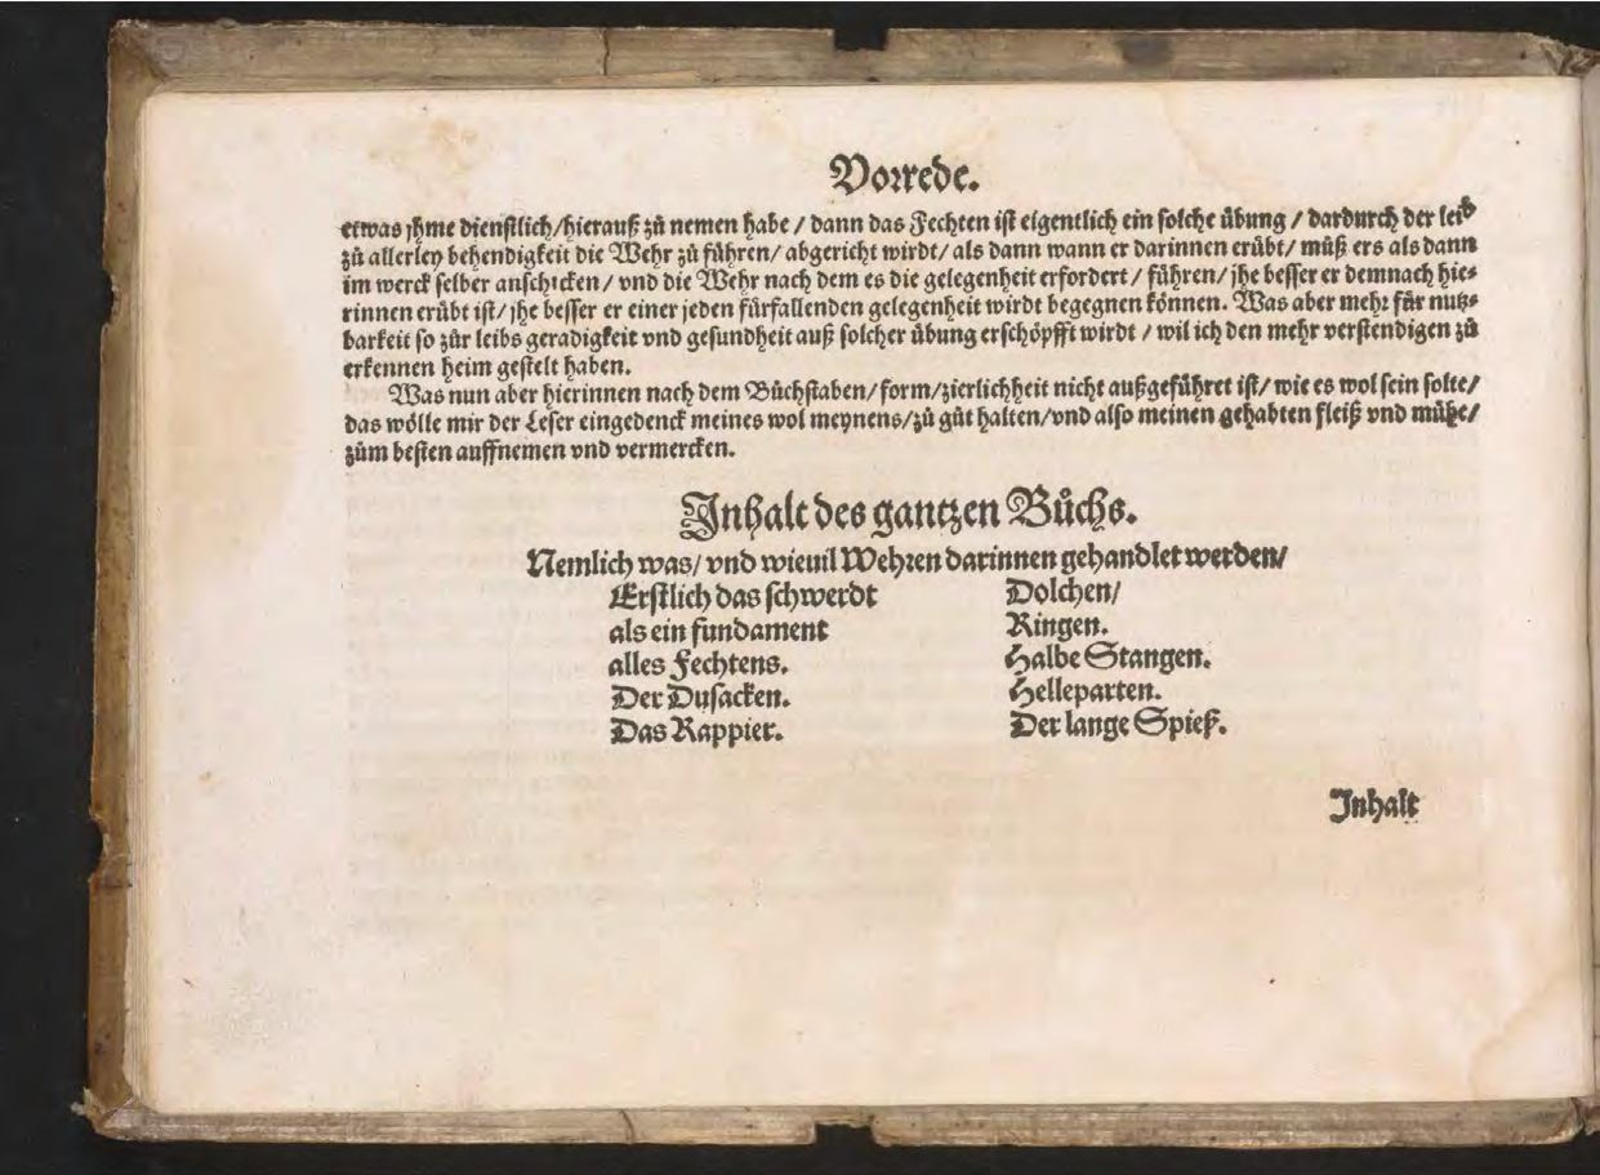 Vorrede.
etwas jhme dienstlich/hierauß zů nemen habe / dann das Fechten ist eigentlich ein solche übung / dardurch der leib
zů allerley behendigkeit die Wehr zů führen/ abgericht wirdt/ als dann wann er darinnen erübt/ můß ers als dann
im werck selber anschicken/ vnd die Wehr nach dem es die gelegenheit erfordert / führen/ jhe besser er demnach hie⸗
rinnen erübt ist/ jhe besser er einer jeden fürfallenden gelegenheit wirdt begegnen können. Was aber mehr für nutz⸗
barkeit so zůr leibs geradigkeit vnd gesundheit auß solcher übung erschöpfft wirdt / wil ich den mehr verstendigen zů
erkennen heim gestelt haben.
Was nun aber hierinnen nach dem Bůchstaben/ form/zierlichheit nicht außgeführet ist/ wie es wol sein solte/
das wölle mir der Leser eingedenck meines wol meynens/zů gůt halten/vnd also meinen gehabten fleiß vnd mühe/
zům besten auffnemen vnd vermercken.
Inhalt des gantzen Bůchs.
Nemlich was/ vnd wieuil Wehren darinnen gehandlet werden/
Erstlich das schwerdt
als ein fundament
alles Fechtens.
Der Dusacken.
Das Rappier.
Dolchen/
Ringen.
Halbe Stangen.
Helleparten.
Der lange Spieß.
Inhalt